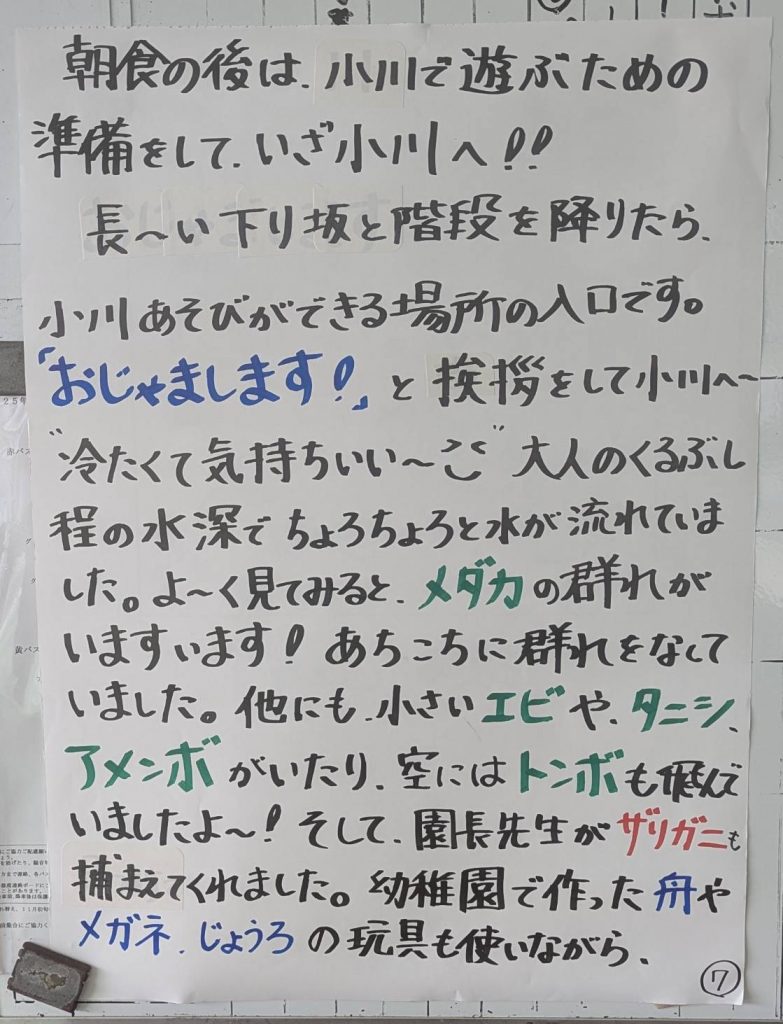 朝食の後は、小川で遊ぶための
準備をして、いざ小川へ!!
長〜い下り坂と階段を降りたら、
小川あそびができる場所の入口です。
「おじゃまします!」と挨拶をして小川へ〜
"冷たくて気持ちいい〜" 大人のくるぶし
程の水深でちょろちょろと水が流れていま
した。よ〜く見てみると、メダカの群れが
いますいます! あちこちに群れをなして
いました。他にも、小さいエビや、タニシ、
アメンボがいたり、空にはトンボも飛んで
いましたよ〜! そして、園長先生がザリガニも
捕まえてくれました。幼稚園で作った舟や
メガネ、じょうろの玩具も使いながら、
⑦